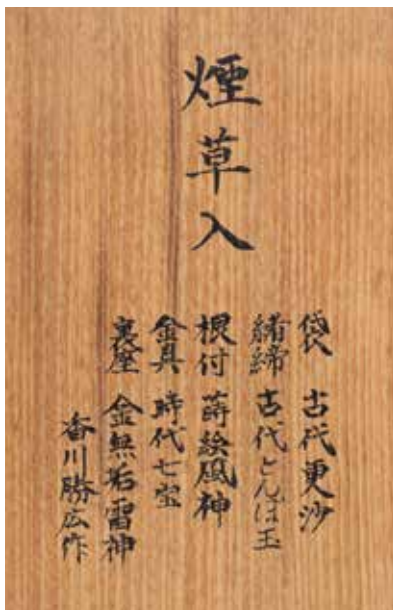 煙草入
袋 古代更沙
緒締 古代とんほ玉
根付 蒔絵風神
金具 時代七宝
裏座 金無垢雷神
香川勝広作